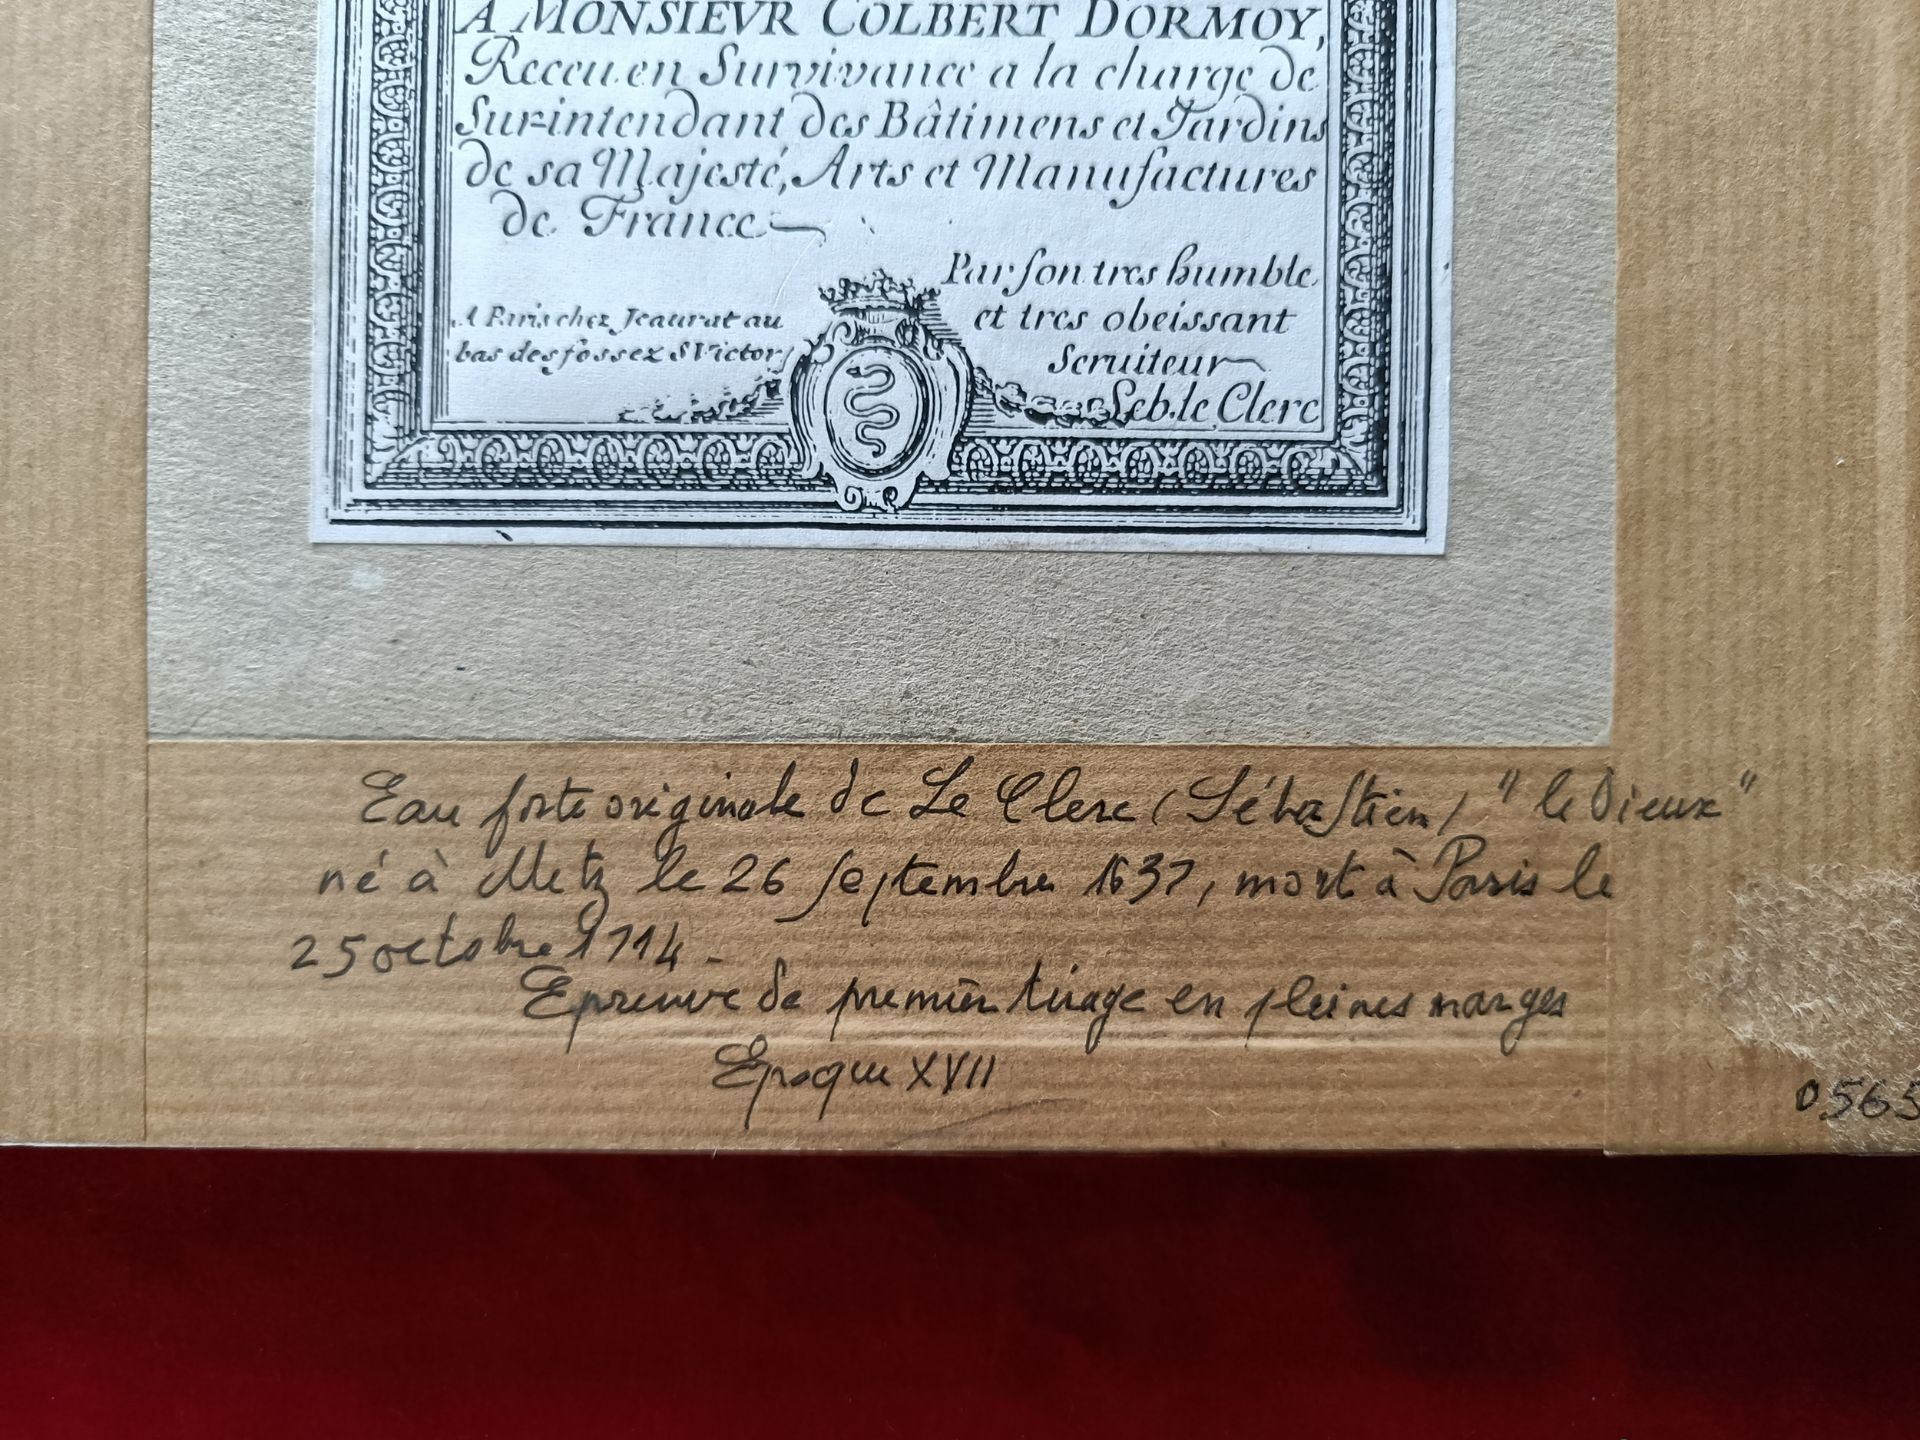 A MONSIEVR COLBERT D'ORMOY,
Receu en Survivance a la charge de
Surintendant des Bâtimens et Jardins
de sa Majesté, Arts et Manufactures
de France
Par son tres humble
et tres obeissant
Seruiteur
Seb. le Clerc
A Paris chez Jeaurat au
bas des fossez S Victor
Eau forte originale de Le Clerc (Sébastien) "le Vieux"
né à Metz le 26 septembre 1637, mort à Paris le
25 octobre 1714 -
Epreuve de premier tirage en pleines marges
Epoque XVII
0565